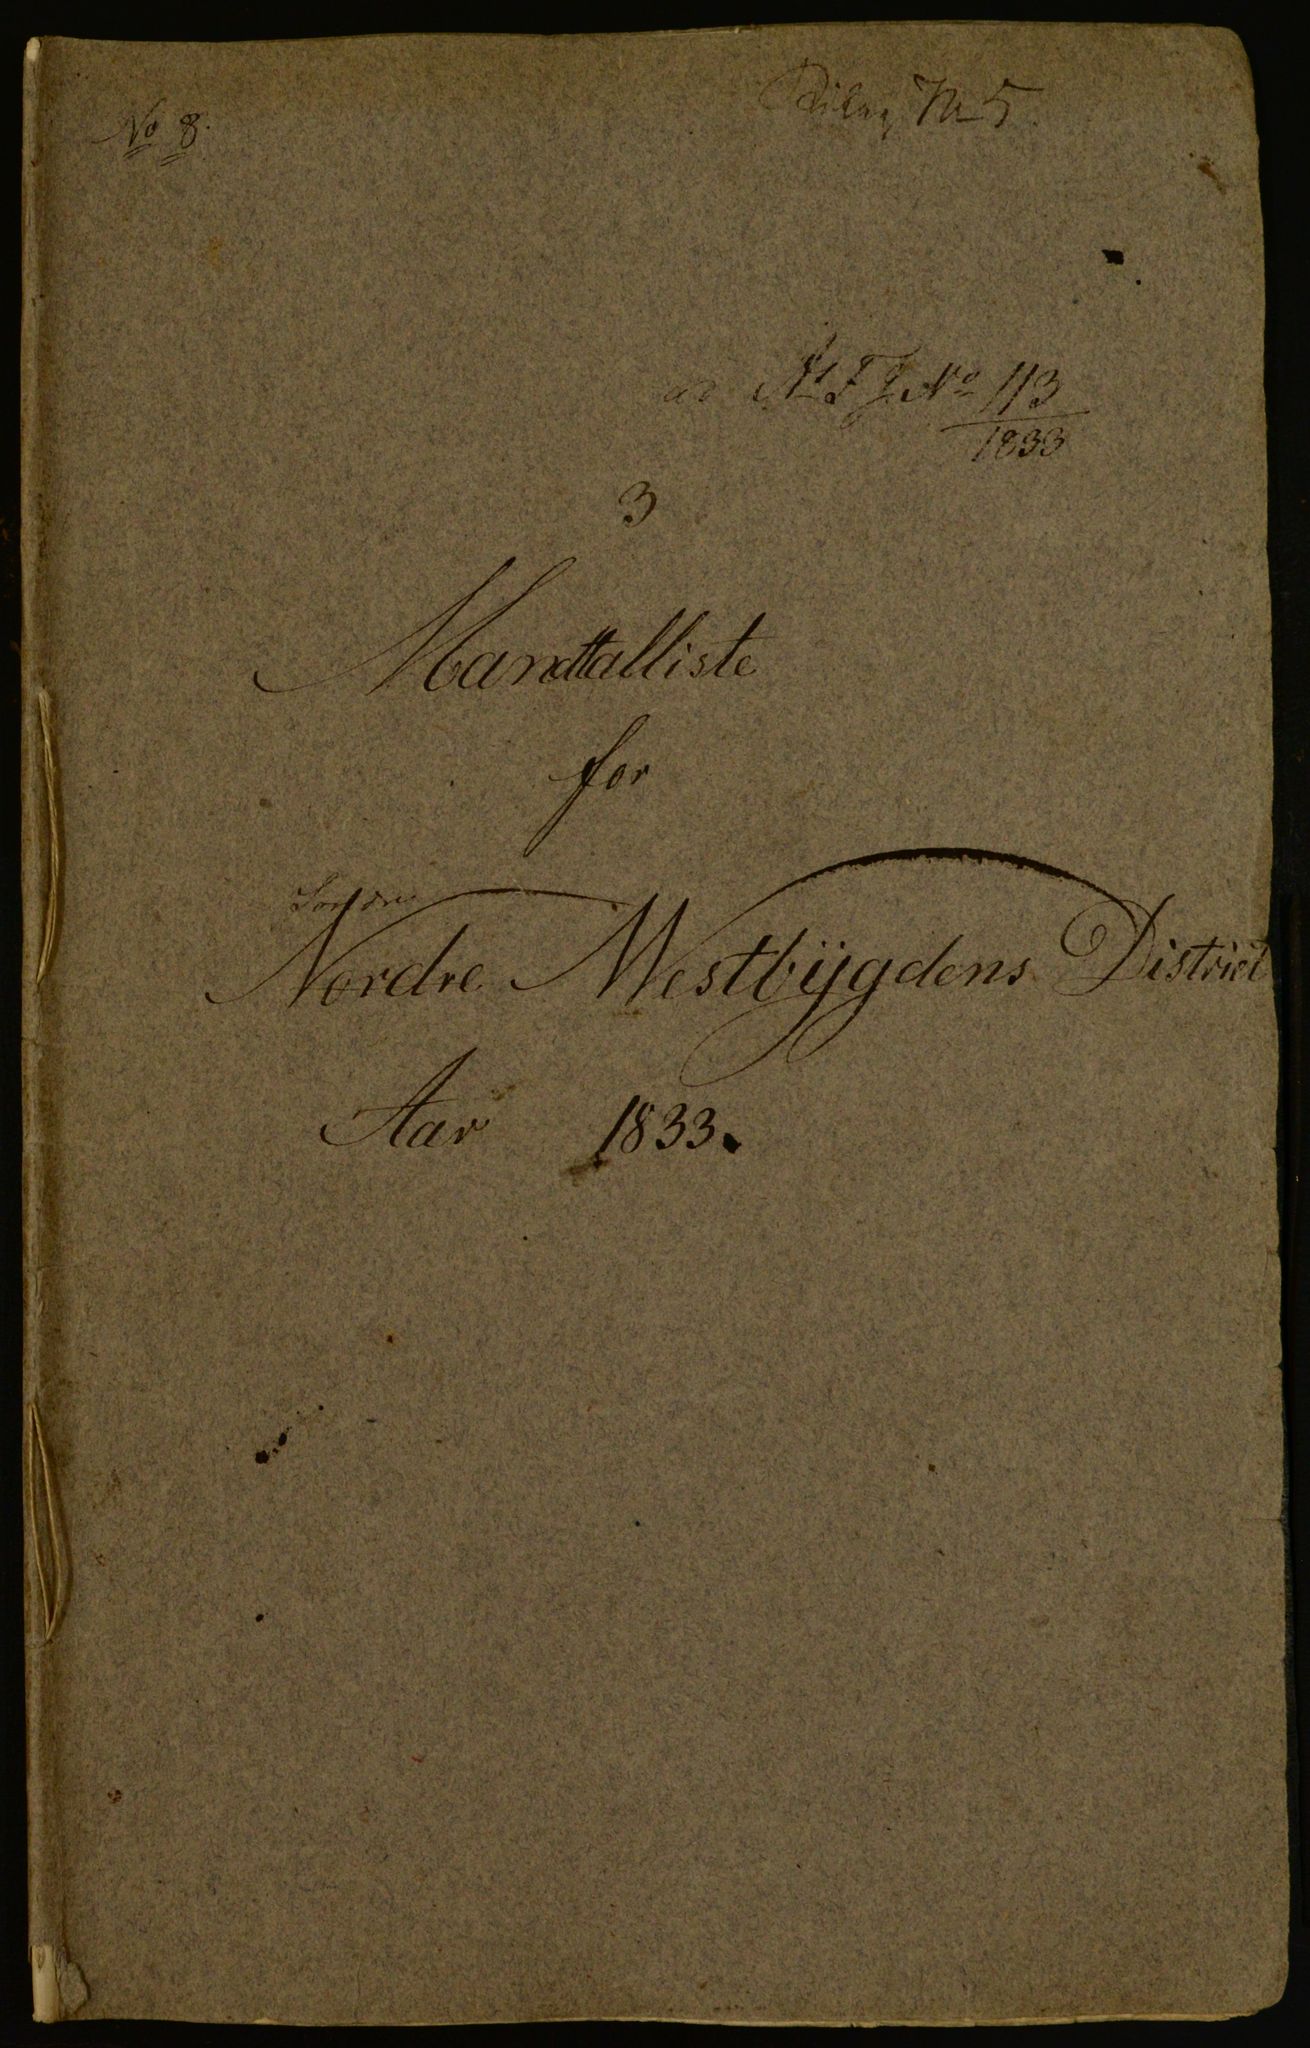 No 8.
Bilag No 5.
ad No 113
1833
3
Mandtalliste
for
Nordre Westbÿgdens District
Aar 1833.